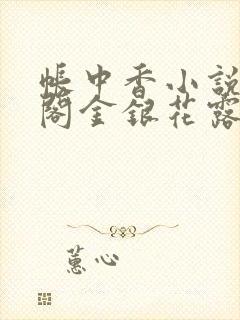 帳中香小說
閣金銀花露
蕙心